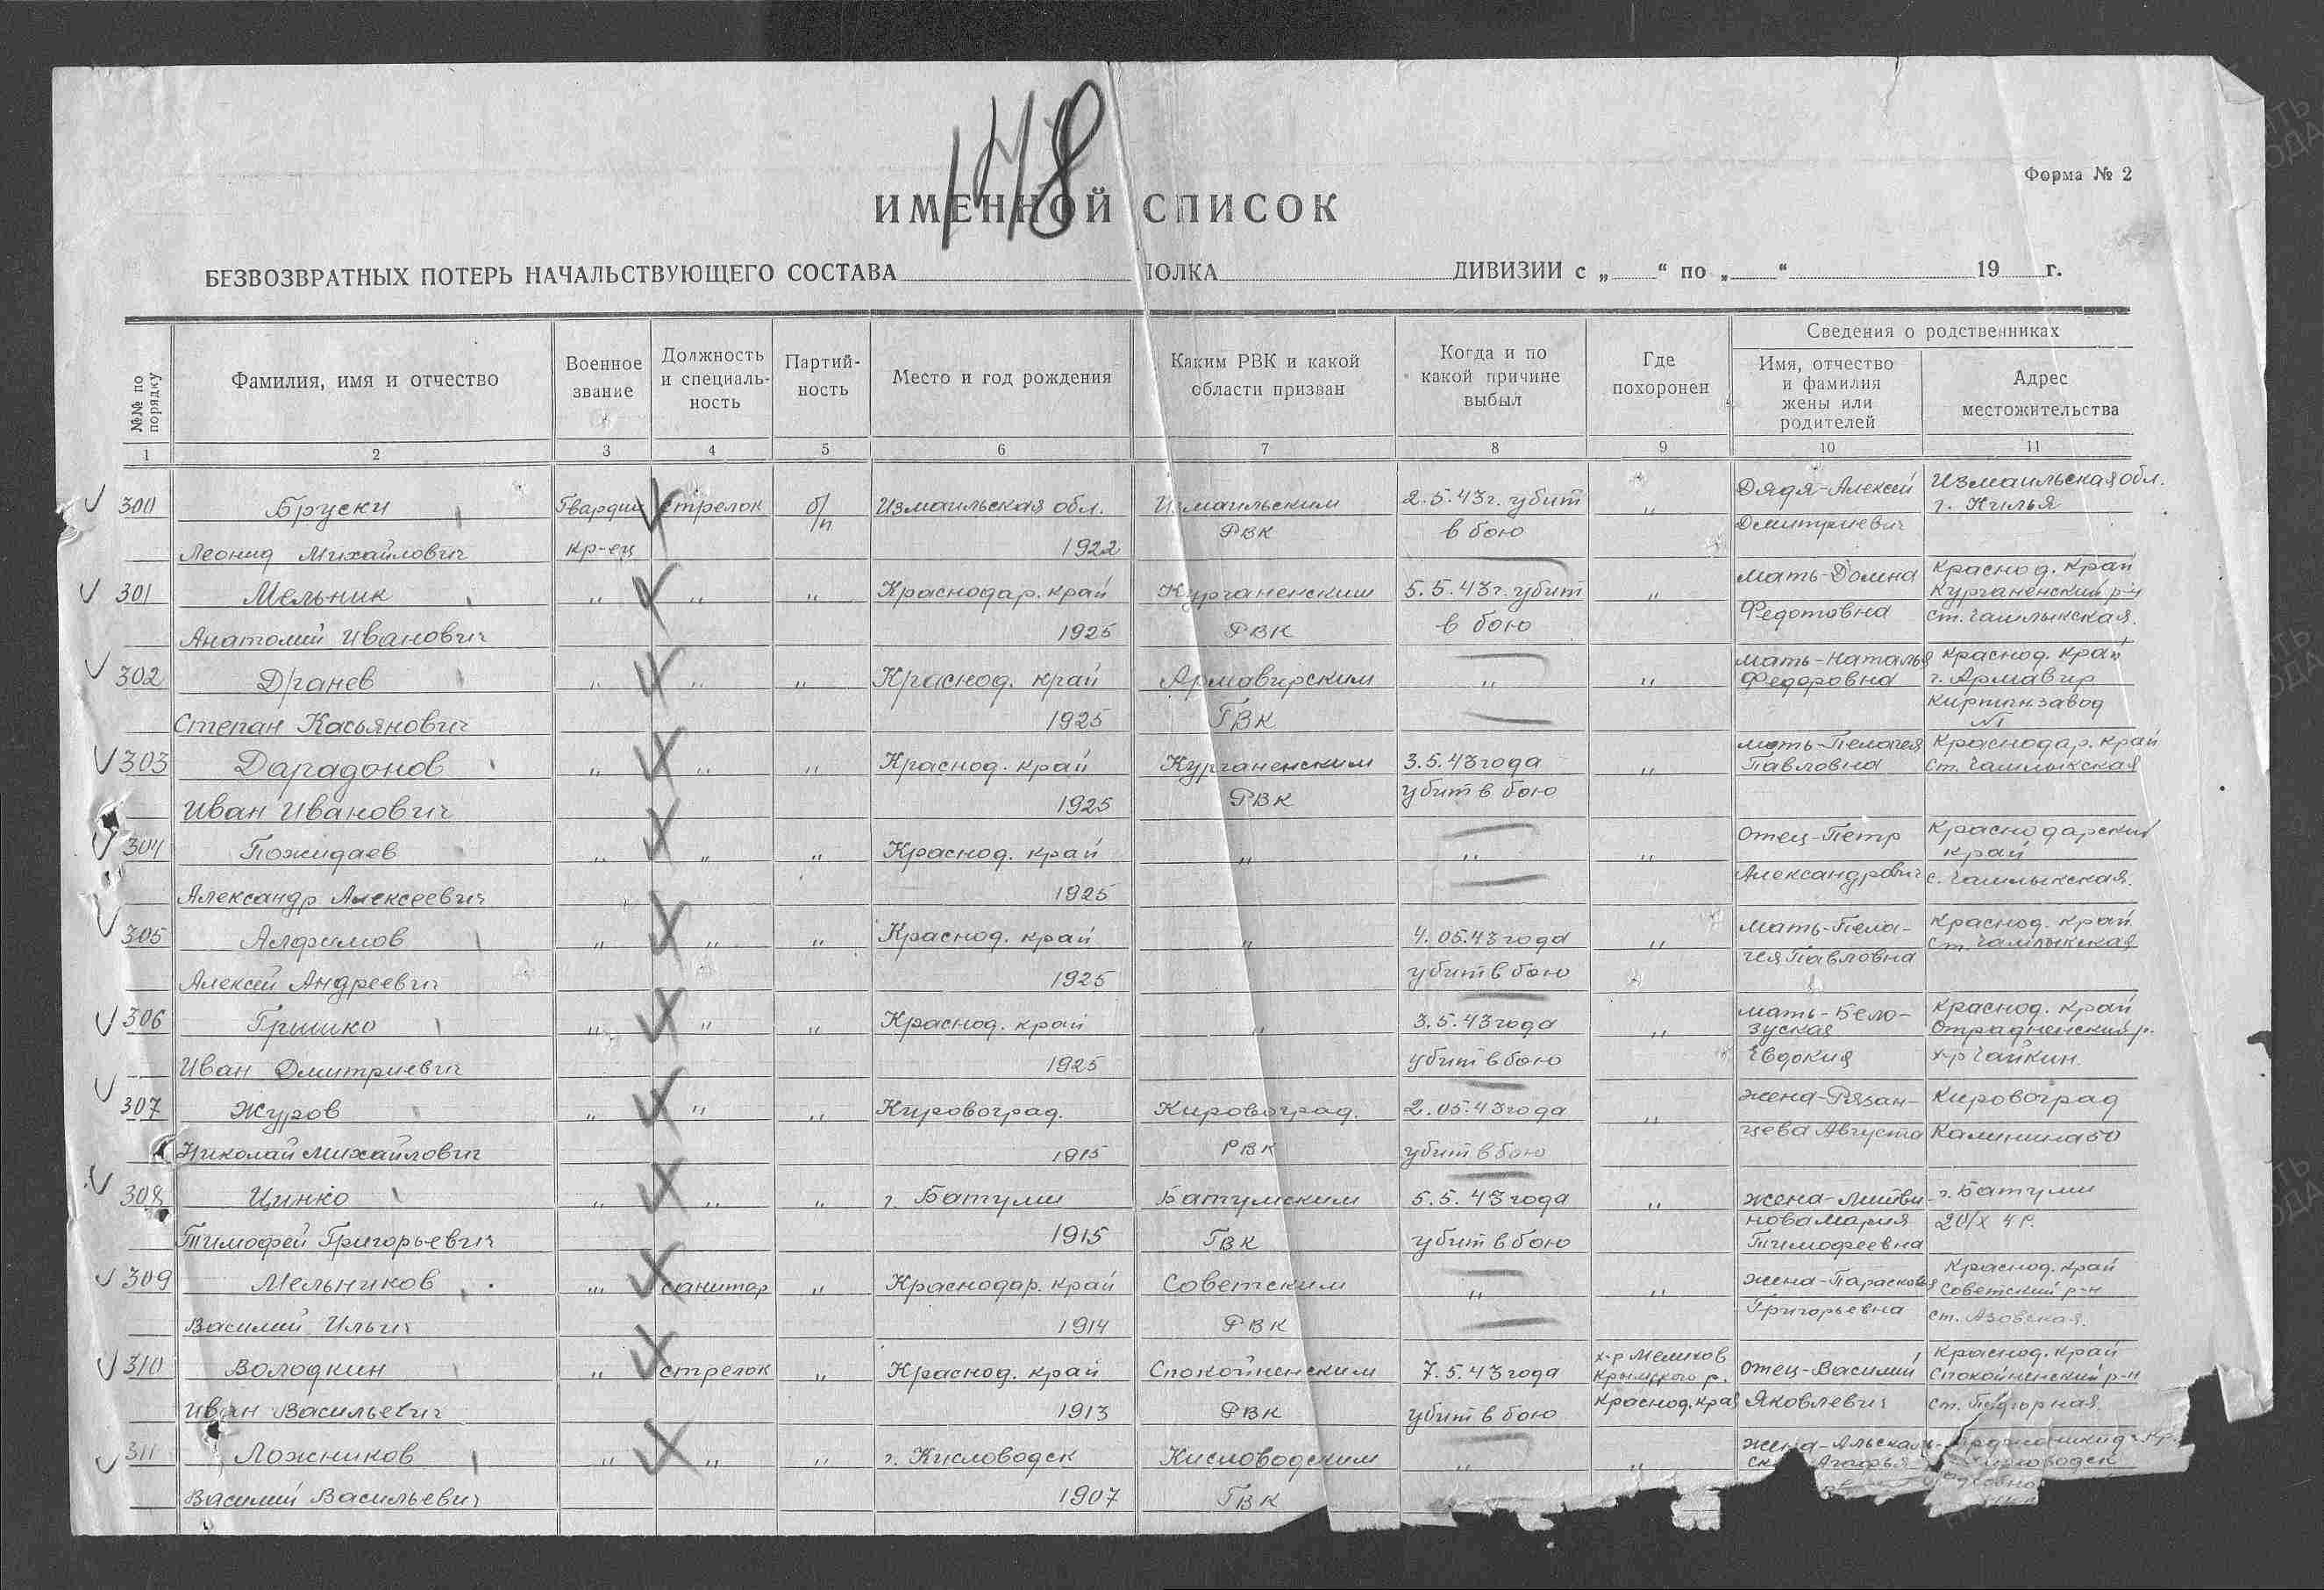 148
Форма № 2
ИМЕННОЙ СПИСОК
БЕЗВОЗВРАТНЫХ ПОТЕРЬ НАЧАЛЬСТВУЮЩЕГО СОСТАВА ПОЛКА ДИВИЗИИ с „ “ по „ “ 19 г.
№№ по порядку
Фамилия, имя и отчество
Военное звание
Должность и специаль-ность
Партий-ность
Место и год рождения
Каким РВК и какой области призван
Когда и по какой причине выбыл
Где похоронен
Сведения о родственниках
Имя, отчество и фамилия жены или родителей
Адрес местожительства
1 2 3 4 5 6 7 8 9 10 11
300 Бруски Гвардии стрелок б/п Измаильская обл. Измаильским 2.5.43г. убит " Дядя-Алексей Измаильская обл.
г. Килья
Леонид Михайлович кр-ец 1922 РВК в бою Дмитриевич
301 Мельник " " " Краснодар. край Курганенским 5.5.43г. убит " Мать-Домна Краснод. край
Курганенский р-н
Анатолий Иванович 1925 РВК в бою Федотовна ст. Чамлыкская.
302 Дганев " " " Краснод. край Армавирским " " мать-Наталья Краснод. край
Федоровна г. Армавир
Степан Касьянович 1925 ГВК Кирпичн. завод
№1
303 Дарадонов " " " Краснод. край Курганенским 3.5.43 года " мать-Пелагея Краснодар. край
Павловна ст. Чамлыкская
Иван Иванович 1925 РВК убит в бою
304 Пожидаев " " " Краснод. край " " " Отец-Петр Краснодарский
край
Александр Алексеевич 1925 Александрович с. Чамлыкская.
305 Алфимов " " " Краснод. край " 4.05.43 года " Мать-Пела- Краснод. край
ст. Чамлыкская
Алексей Андреевич 1925 убит в бою гея Павловна
306 Гришко " " " Краснод. край " 3.5.43 года " Мать-Бело- Краснод. край
зуская Отрадненский р.
Иван Дмитриевич 1925 убит в бою Евдокия х-р Чайкин.
307 Журов " " " Кировоград. Кировоград. 2.05.43 года " жена-Рязан- Кировоград
Николай Михайлович 1915 РВК убит в бою цева Августа Калинина 50
308 Цинко " " " г. Батуми Батумским 5.5.43 года " жена-Литви- г. Батуми
нова Мария
Тимофей Григорьевич 1915 ГВК убит в бою Тимофеевна
309 Мельников " санитар " Краснодар. край Советским " " жена-Парасковья Краснод. край
Советский р-н
Василий Ильич 1914 РВК Григорьевна ст. Азовская.
310 Володкин " стрелок " Краснод. край Спокойненским 7.5.43 года х-р Мелихов Отец-Василий Краснод. край
Крымского р. Спокойненский р-н
Иван Васильевич 1913 РВК убит в бою Краснод. края Яковлевич ст. Подгорная.
311 Ложников " " " г. Кисловодск Кисловодским " " жена-
Агафья
Василий Васильевич 1907 ГВК